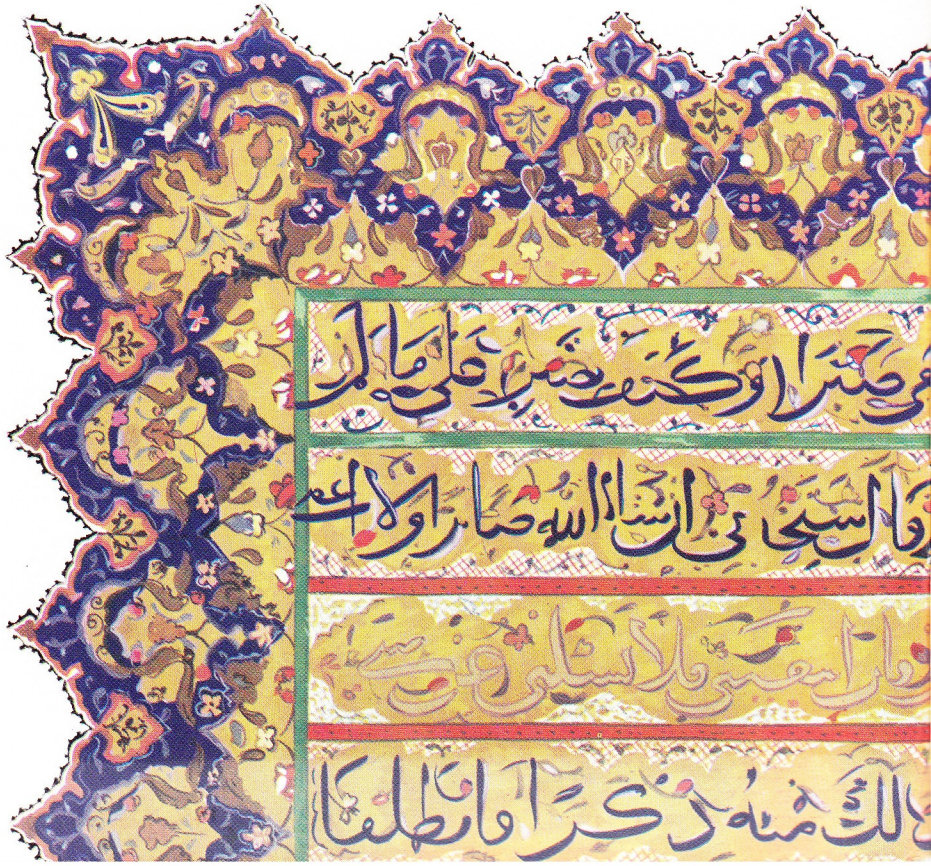 صبرا وكيف تصبر على ما لم
قال ستجدنى ان شاء الله صابرا ولا
فان اتبعتنى فلا تسئلنى عن
لك منه ذكرا فانطلقا